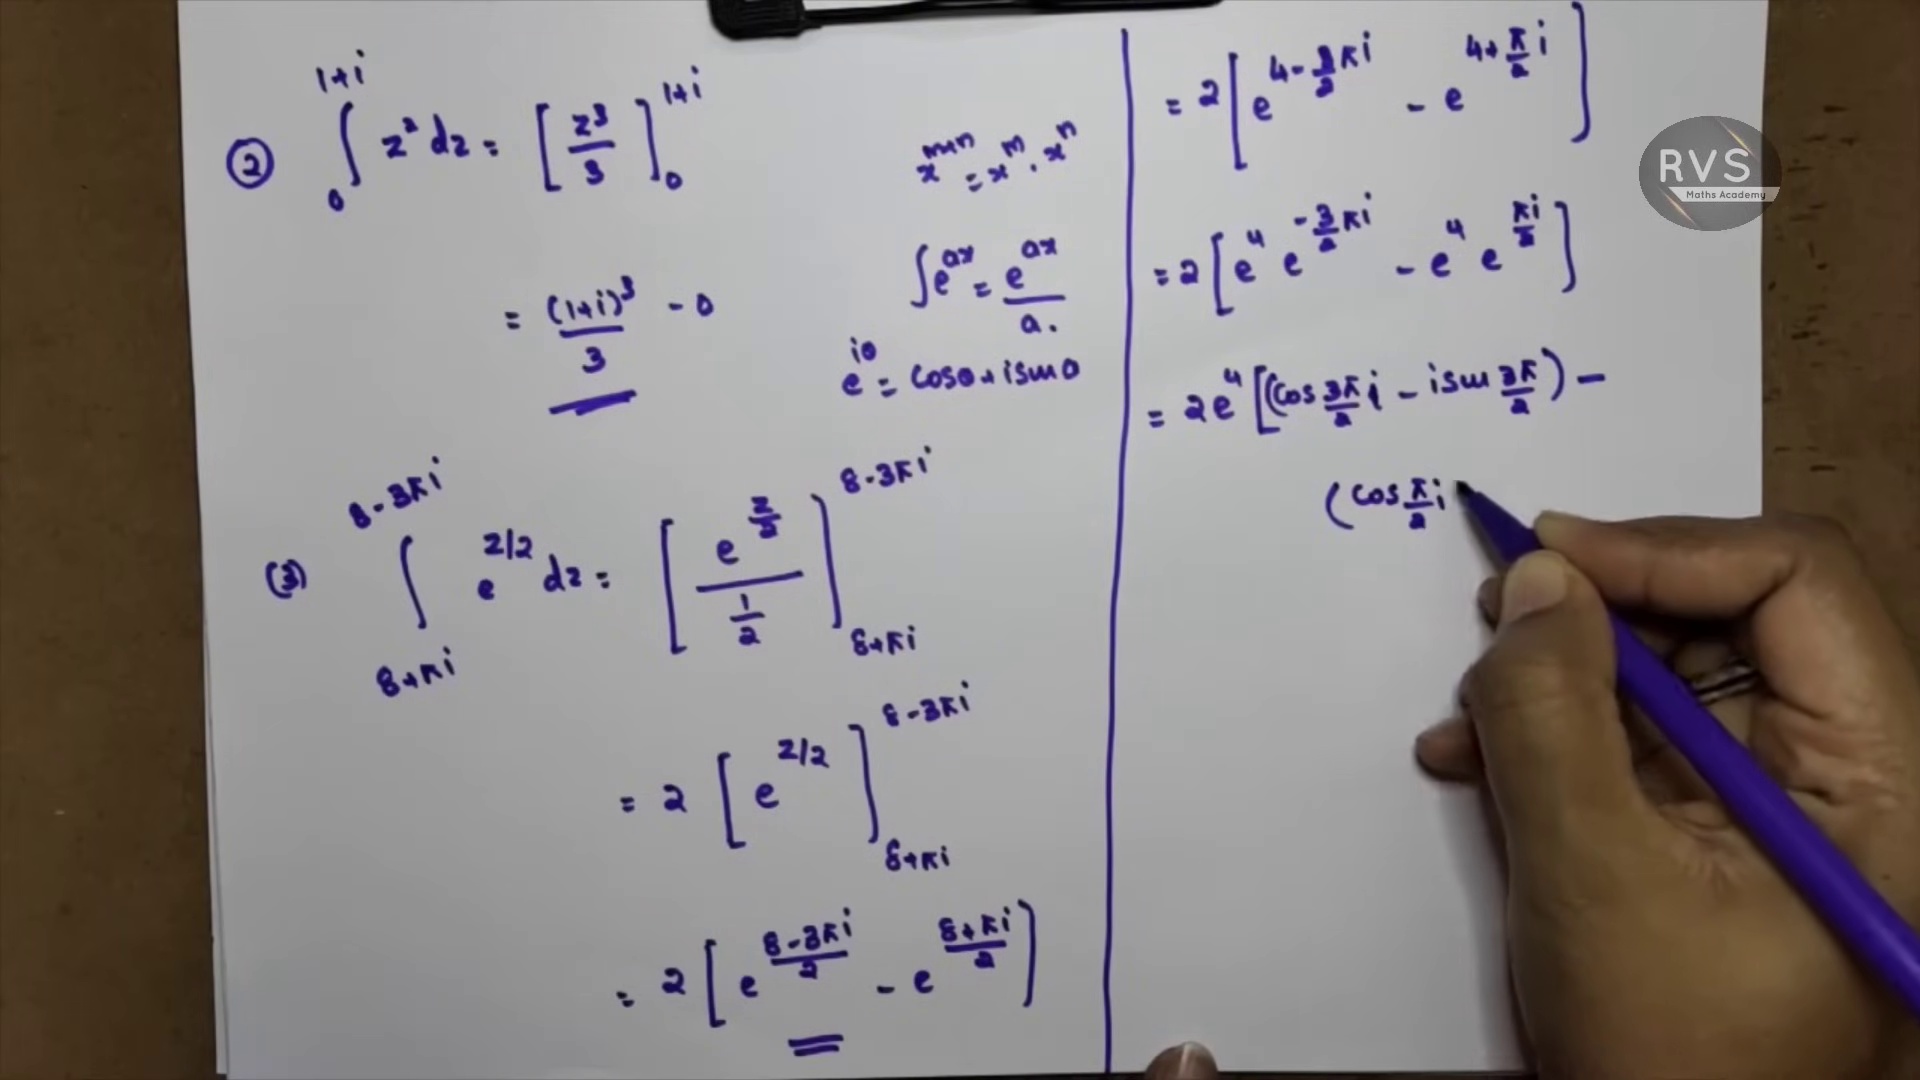 ② ∫₀^{1+i} z² dz = [z³/3]₀^{1+i}
= (1+i)³/3 - 0
x^{m+n} = x^m · x^n
∫e^{ax} = e^{ax}/a.
e^{iθ} = cosθ + isinθ
(3) ∫_{8+πi}^{8-3πi} e^{z/2} dz = [e^{z/2}/(1/2)]_{8+πi}^{8-3πi}
= 2 [e^{z/2}]_{8+πi}^{8-3πi}
= 2 [e^{(8-3πi)/2} - e^{(8+πi)/2}]
= 2 [e^{4-3/2 πi} - e^{4+π/2 i}]
= 2 [e⁴ e^{-3/2 πi} - e⁴ e^{πi/2}]
= 2e⁴ [(cos 3π/2 i - isin 3π/2) -
(cos π/2 i
RVS
Maths Academy